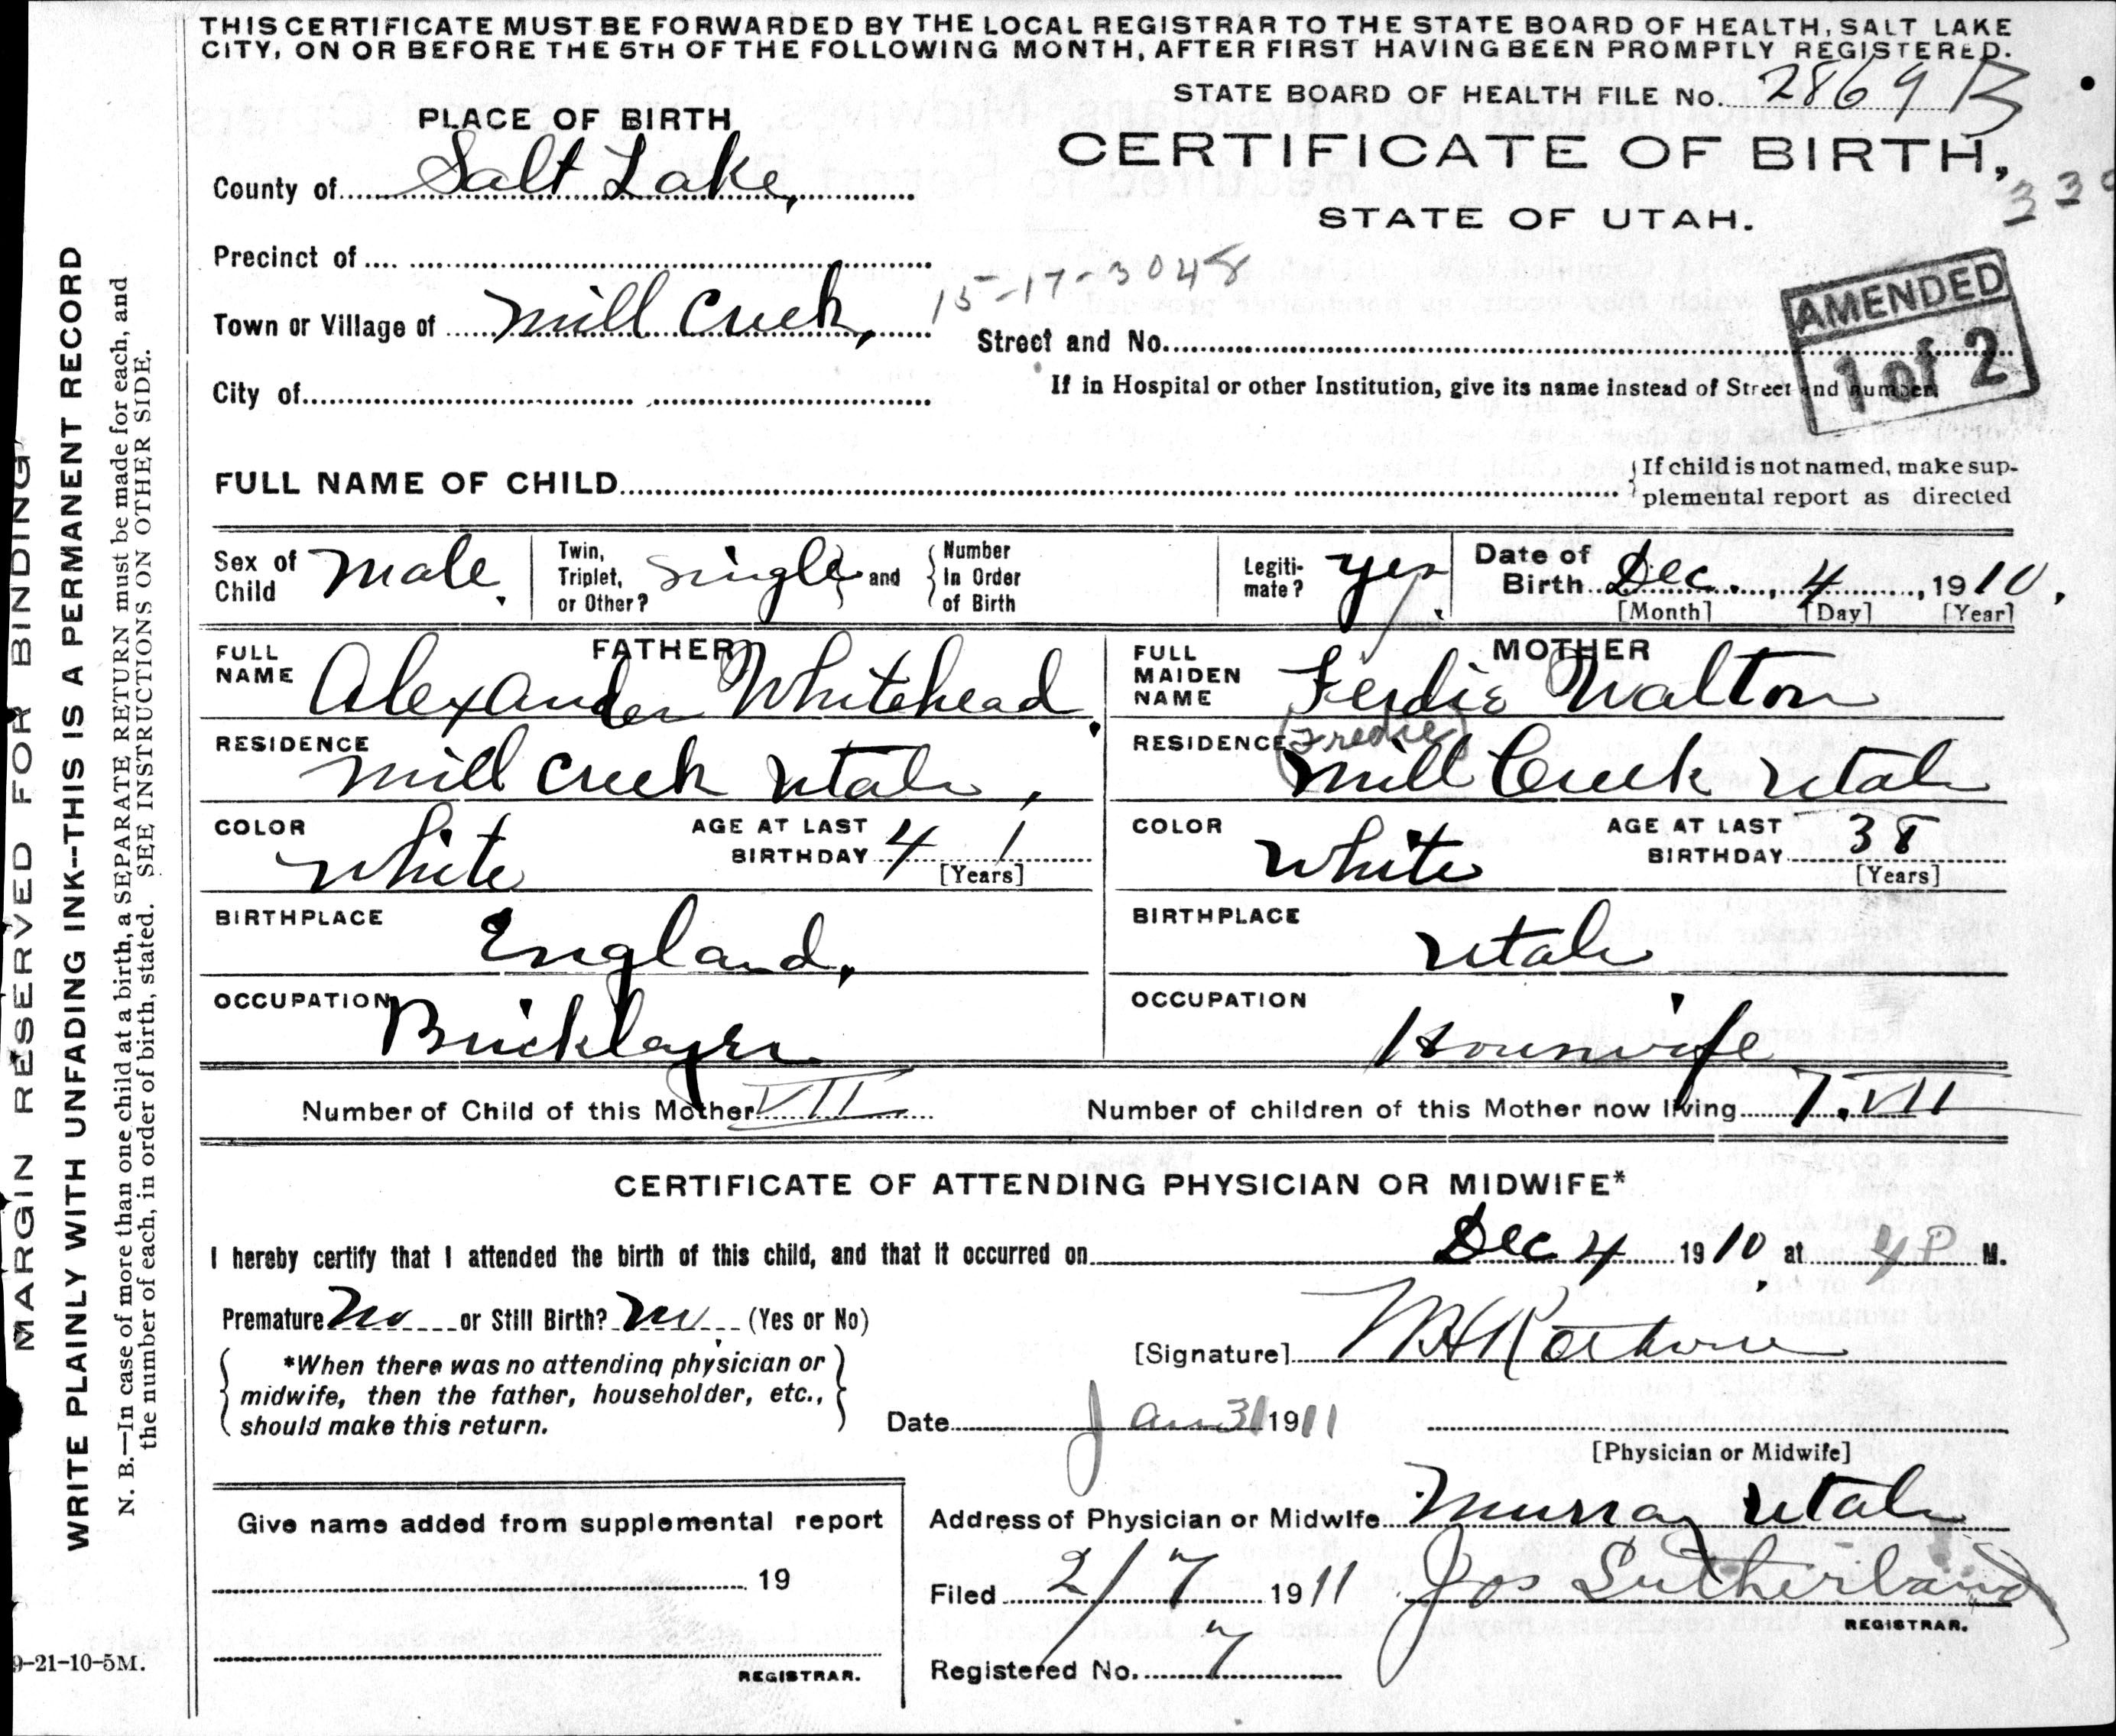 THIS CERTIFICATE MUST BE FORWARDED BY THE LOCAL REGISTRAR TO THE STATE BOARD OF HEALTH, SALT LAKE
CITY, ON OR BEFORE THE 5TH OF THE FOLLOWING MONTH, AFTER FIRST HAVING BEEN PROMPTLY REGISTERED.
STATE BOARD OF HEALTH FILE No. 2869 B
PLACE OF BIRTH
CERTIFICATE OF BIRTH,
County of Salt Lake,
STATE OF UTAH.
Precinct of
15-17-3048
AMENDED
1 of 2
Town or Village of Mill Creek,
Street and No.
City of
If in Hospital or other Institution, give its name instead of Street and number.
FULL NAME OF CHILD
If child is not named, make sup-
plemental report as directed
Sex of Child Male.
Twin, Triplet, or Other? Single and Number In Order of Birth
Legiti-mate? yes.
Date of Birth Dec. 4, 1910.
[Month] [Day] [Year]
FATHER
FULL NAME Alexander Whitehead.
RESIDENCE Mill Creek Utah,
COLOR White AGE AT LAST BIRTHDAY 41
[Years]
BIRTHPLACE England,
OCCUPATION Bricklayer
MOTHER
FULL MAIDEN NAME Ferdie Walton
(Fredie)
RESIDENCE Mill Creek Utah
COLOR White AGE AT LAST BIRTHDAY 38
[Years]
BIRTHPLACE Utah
OCCUPATION Housewife
Number of Child of this Mother VII
Number of children of this Mother now living 7. VII
CERTIFICATE OF ATTENDING PHYSICIAN OR MIDWIFE*
I hereby certify that I attended the birth of this child, and that it occurred on Dec 4 1910, at 4 P M.
Premature No or Still Birth? No. (Yes or No)
*When there was no attending physician or
midwife, then the father, householder, etc.,
should make this return.
[Signature]
Date Jan 31 1911
[Physician or Midwife]
Give name added from supplemental report
19
REGISTRAR.
Address of Physician or Midwife Murray Utah
Filed 2/7 1911 Jos Sutherland
REGISTRAR.
Registered No. 7
MARGIN RESERVED FOR BINDING
WRITE PLAINLY WITH UNFADING INK--THIS IS A PERMANENT RECORD
N. B.—In case of more than one child at a birth, a SEPARATE RETURN must be made for each, and
the number of each, in order of birth, stated. SEE INSTRUCTIONS ON OTHER SIDE.
9-21-10-5M.